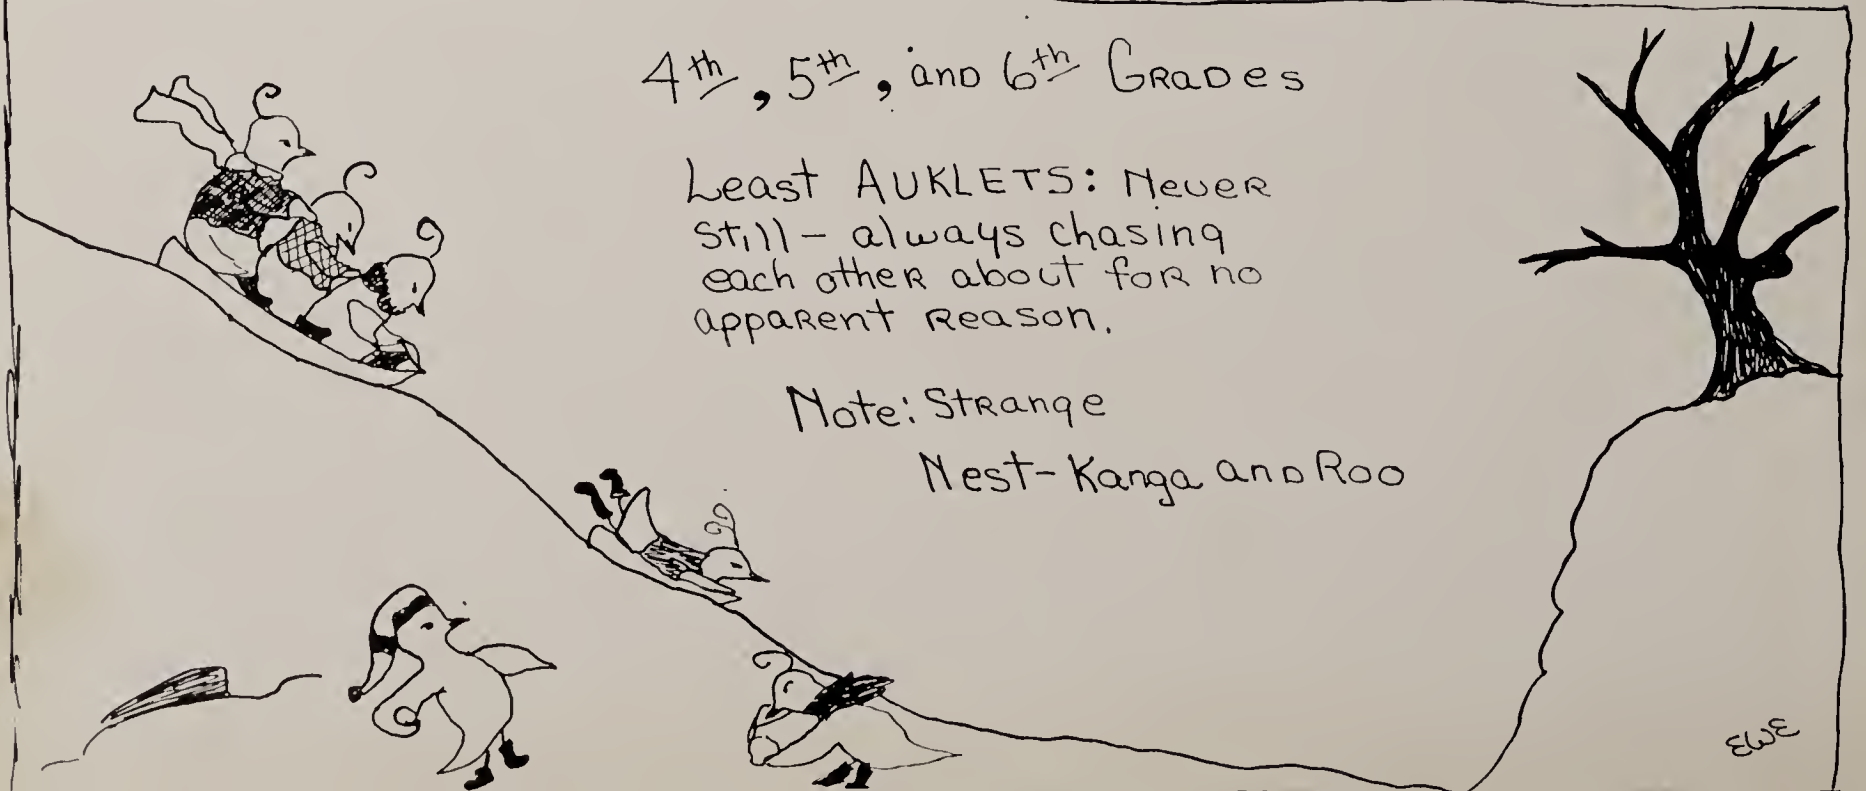 4th, 5th, and 6th Grades
Least AUKLETS: Never
still - always chasing
each other about for no
apparent reason.
Note: Strange
Nest - Kanga and Roo
EWE